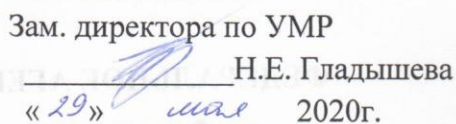 Зам. директора по УМР
Н.Е. Гладышева
« 29 » мая 2020г.